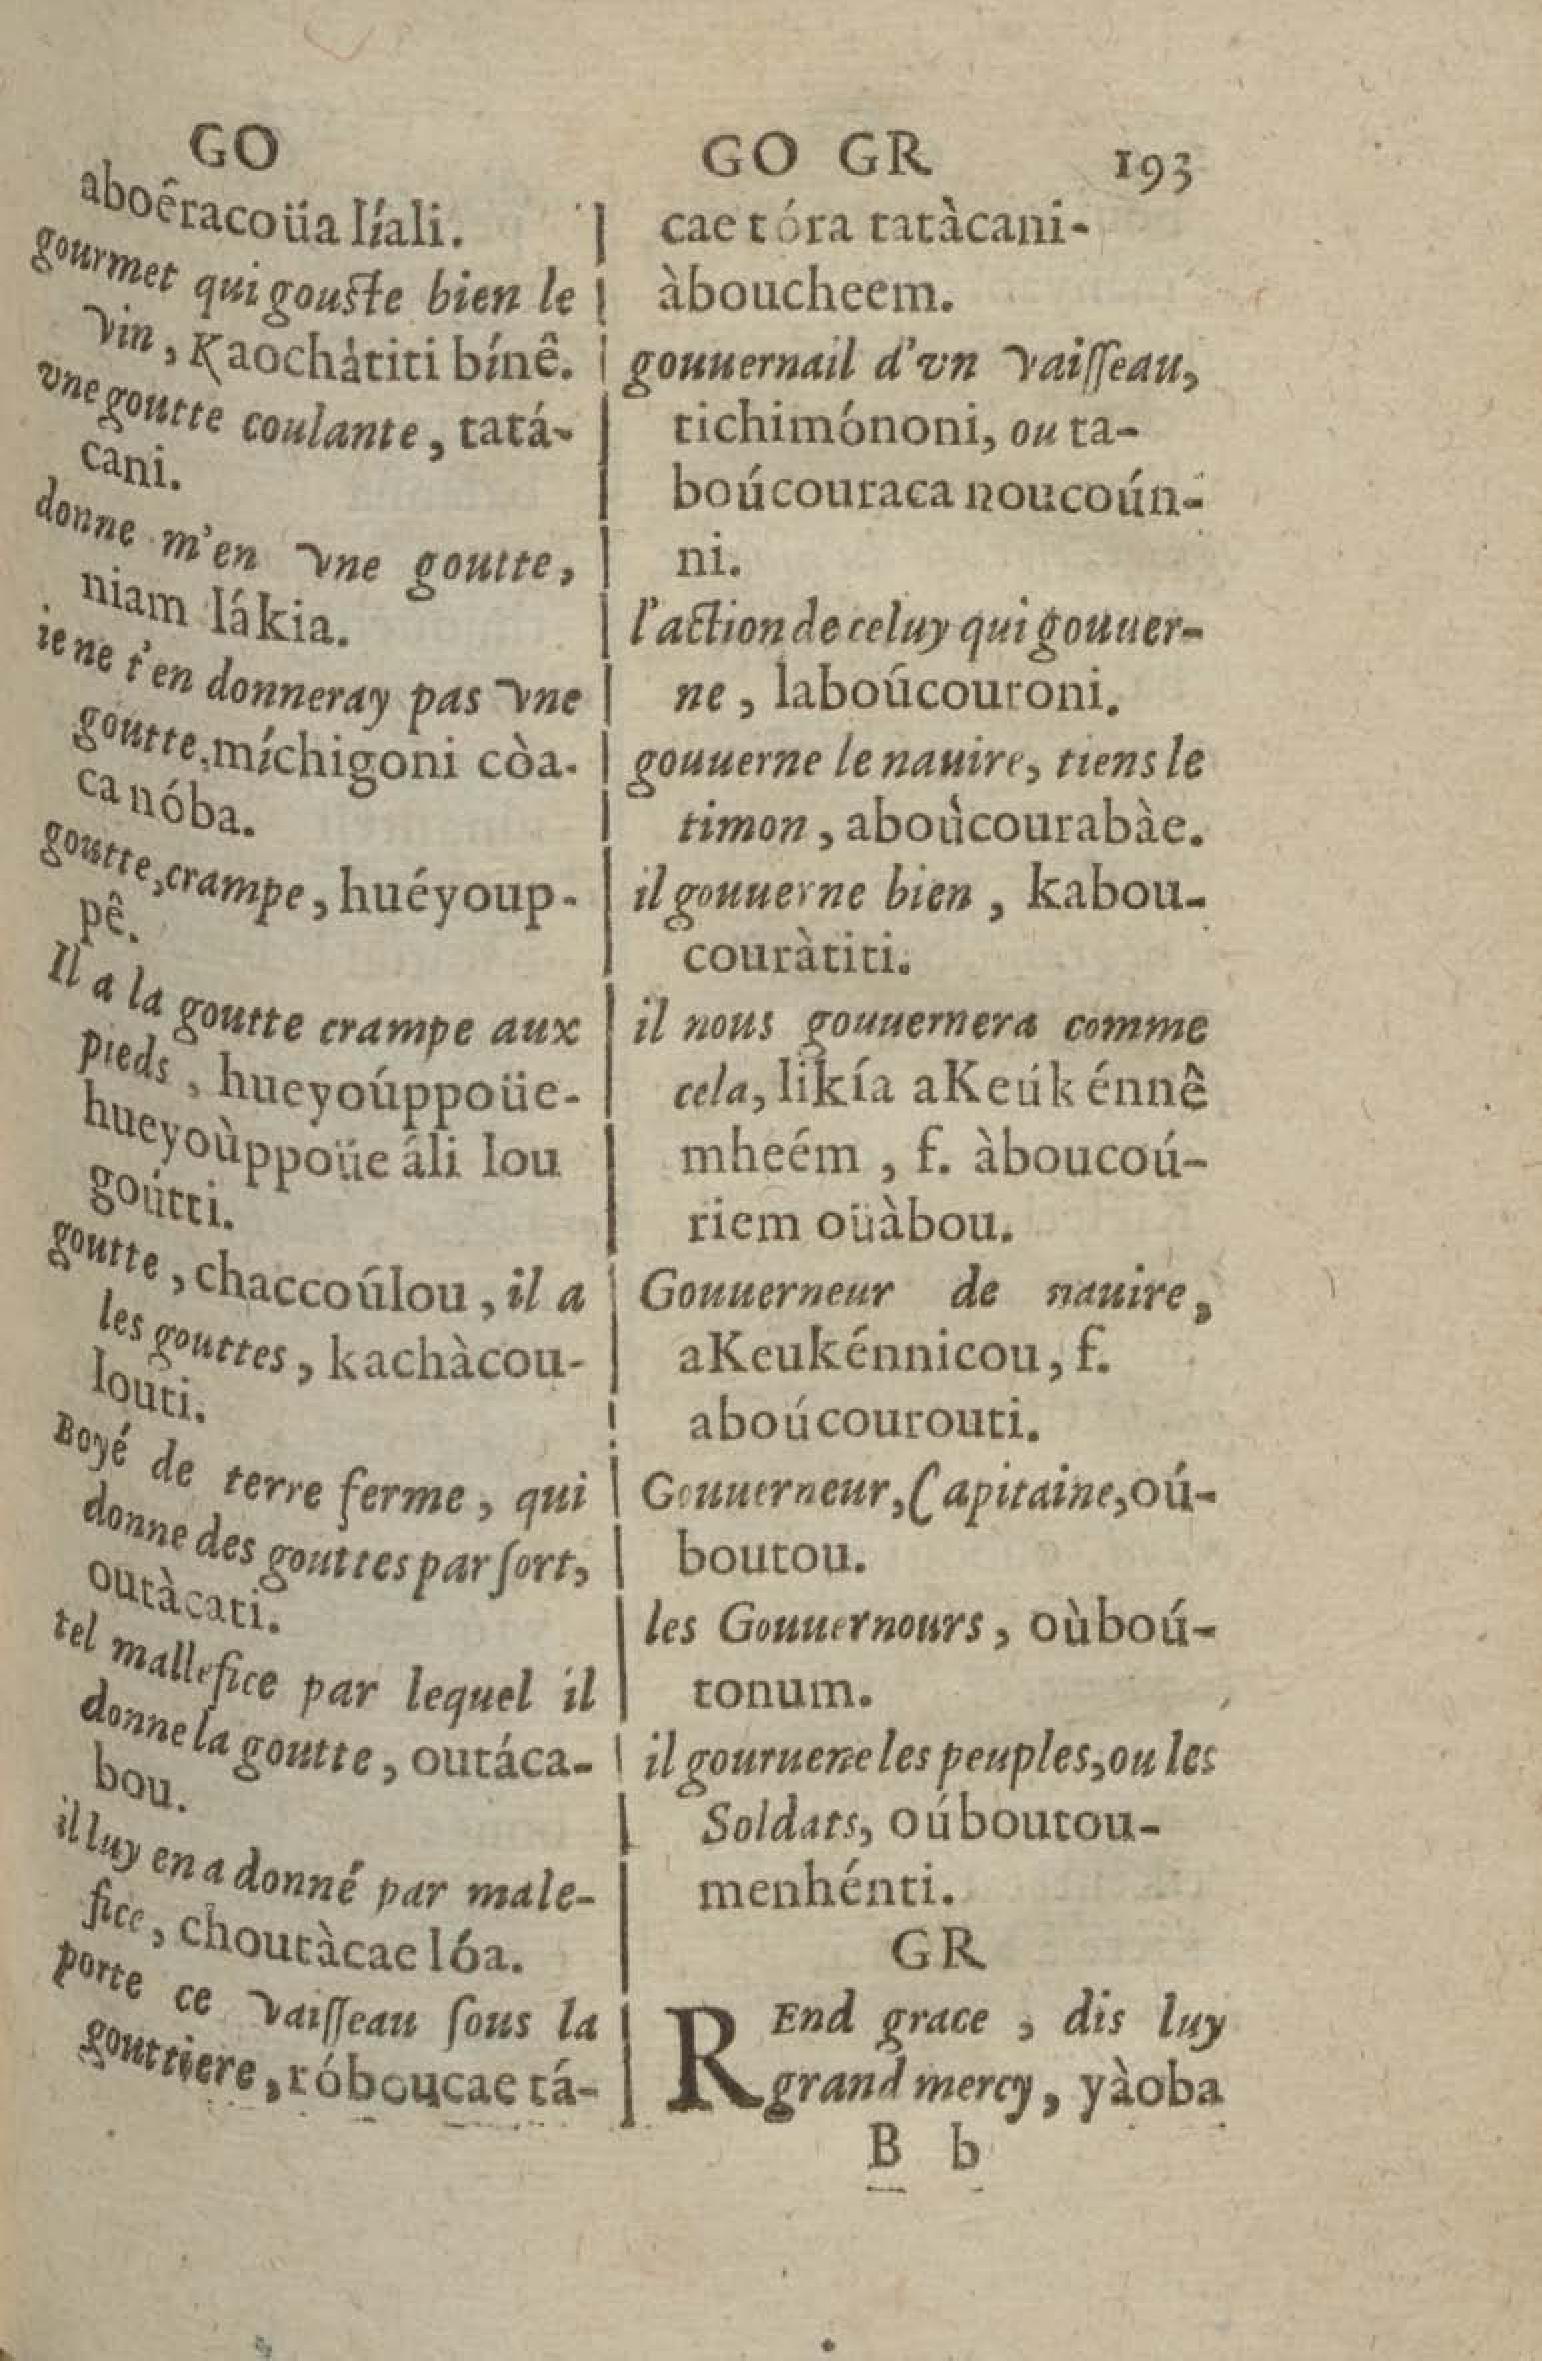 GO
aboêracoüa líali.
gourmet qui gouste bien le
vin, Kaochàtiti bínê.
vne goutte coulante, tatá-
cani.
donne m'en vne goutte,
niam lákia.
ie ne t'en donneray pas vne
goutte, míchigoni còa-
ca nóba.
goutte, crampe, huéyoup-
pê.
Il a la goutte crampe aux
pieds, hueyoúppoüe-
hueyoùppoüe áli lou
goútti.
goutte, chaccoúlou, il a
les gouttes, kachàcou-
louti.
Boyé de terre ferme, qui
donne des gouttes par sort,
outàcati.
tel mallefice par lequel il
donne la goutte, outáca-
bou.
il luy en a donné par male-
fice, choutàcae lóa.
porte ce vaisseau sous la
gouttiere, róboucae tá-
GO GR 193
cae tóra tatàcani-
àboucheem.
gouuernail d'vn vaisseau,
tichimónoni, ou ta-
boúcouraca noucoún-
ni.
l'action de celuy qui gouuer-
ne, laboúcouroni.
gouuerne le nauire, tiens le
timon, aboùcourabàe.
il gouuerne bien, kabou-
couràtiti.
il nous gouuernera comme
cela, likía aKeúkénnê
mheém, f. àboucoú-
riem oüàbou.
Gouuerneur de nauire,
aKeukénnicou, f.
aboúcourouti.
Gouuerneur, Capitaine, oú-
boutou.
les Gouuernours, oùboú-
tonum.
il gouruene les peuples, ou les
Soldats, oúboutou-
menhénti.
GR
REnd grace, dis luy
grand mercy, yàoba
B b